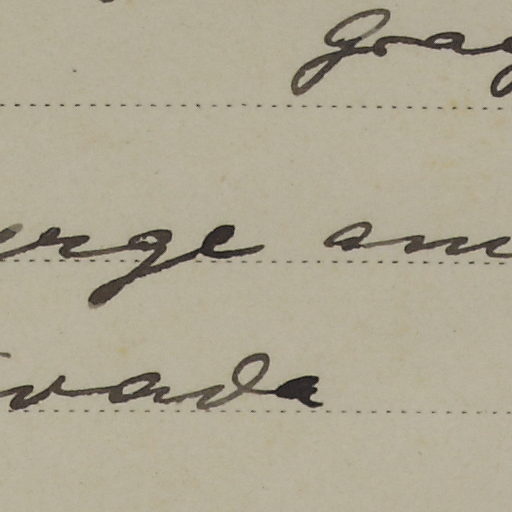 Grag
erge am
vada